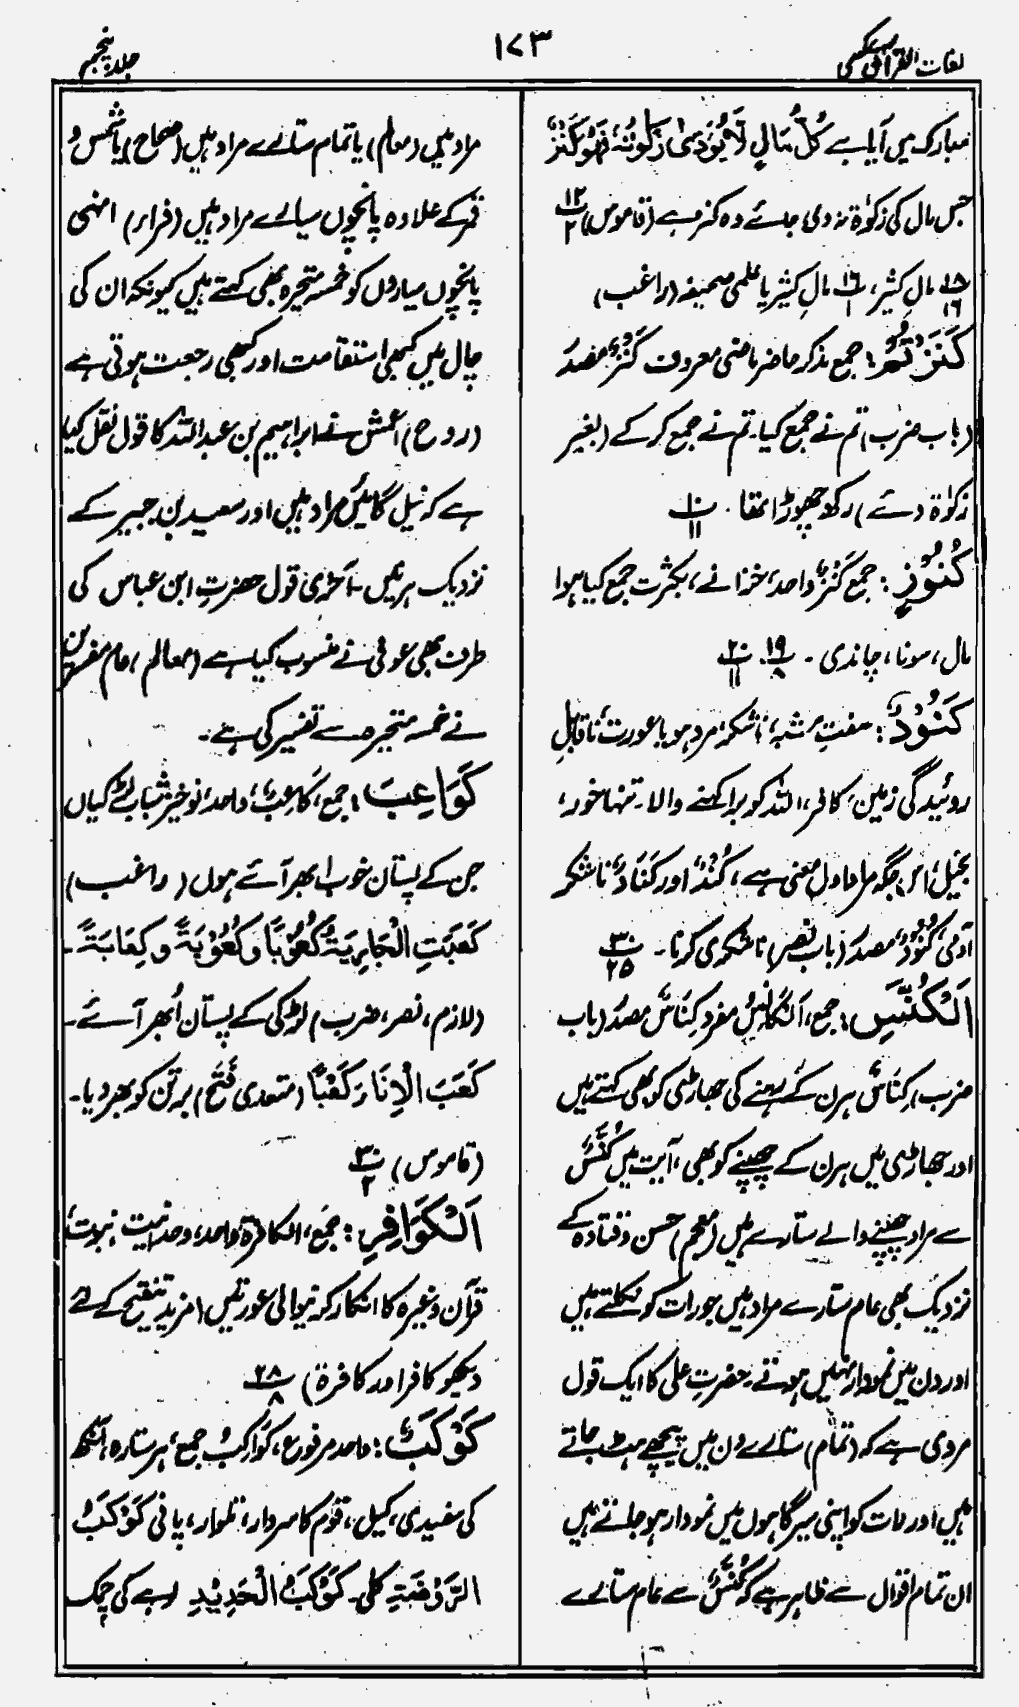 لغات القرآن عکسی
۱۷۳
جلد پنجم
مبارک میں آیا ہے کُلُّ مَالٍ لَّا یُؤَدّٰی زَکٰوتُہٗ فَہُوَ کَنْزٌ
جس مال کی زکوٰۃ نہ دی جائے وہ کنز ہے (قاموس) ۱۲/۲
۱۵/۱۶ مالِ کثیر، ۱۶/۱ مالِ کثیر یا علمی صحیفہ (راغب)
کَنَزْتُمْ: جمع مذکر حاضر ماضی معروف کَنْزٌ مصدر
(باب ضرب) تم نے جمع کیا۔ تم نے جمع کر کے (بغیر
زکوٰۃ دئے) رکھ چھوڑا تھا۔ ۱۰/۱۱
کُنُوْزٍ: جمع کَنْزٌ واحد، خزانے، بکثرت جمع کیا ہوا
مال، سونا، چاندی۔ ۱۹/۸ ۲۰/۱۱
کَنُوْدٌ: صفتِ مشبہ، ناشکر، مرد ہو یا عورت، ناقابلِ
روئیدگی زمین، کافر، اللہ کو برا کہنے والا۔ تنہا خور،
بخیل، اس جگہ مراد اول معنی ہے، کُنُدٌ اور کَنَّادٌ ناشکر
آدمی، کُنُوْدٌ مصدر (باب نصر) ناشکری کرنا۔ ۳۰/۲۵
اَلْکُنَّسِ: جمع، اَلْکَانِسُ مفرد کِنَاسٌ مصدر (باب
ضرب) کِنَاسٌ ہرن کے رہنے کی جھاڑی کو بھی کہتے ہیں
اور جھاڑی میں ہرن کے چھپنے کو بھی، آیت میں کُنَّسٌ
سے مراد چھپنے والے ستارے ہیں (معجم) حسن و قتادہ کے
نزدیک بھی عام ستارے مراد ہیں جو رات کو نکلتے ہیں
اور دن میں نمودار نہیں ہوتے۔ حضرت علی کا ایک قول
مروی ہے کہ (تمام) ستارے دن میں پیچھے ہٹ جاتے
ہیں اور رات کو اپنی سیرگاہوں میں نمودار ہو جاتے ہیں
ان تمام اقوال سے ظاہر ہے کہ کُنَّسٌ سے عام ستارے
مراد ہیں (معالم) یا تمام ستارے مراد ہیں (صحاح) یا شمس و
قمر کے علاوہ پانچوں سیارے مراد ہیں (فراء) انہی
پانچوں سیاروں کو خمسہ متحیرہ بھی کہتے ہیں کیونکہ ان کی
چال میں کبھی استقامت اور کبھی رجعت ہوتی ہے
(روح) اعمش نے ابراہیم بن عبد اللہ کا قول نقل کیا
ہے کہ نیل گائیں مراد ہیں اور سعید بن جبیر کے
نزدیک ہرنیں۔ آخری قول حضرتِ ابن عباس کی
طرف بھی عوفی نے منسوب کیا ہے (معالم) عام مفسرین
نے خمسہ متحیرہ سے تفسیر کی ہے۔
کَوَاعِبَ: جمع، کَاعِبٌ، واحد، نوخیز شباب لڑکیاں
جن کے پستان خوب ابھر آئے ہوں (راغب)
کَعَبَتِ الْجَارِیَۃُ کُعُوْبًا وَ کُعُوْبَۃً وَ کِعَابَۃً۔
(لازم، نصر، ضرب) لڑکی کے پستان اُبھر آئے۔
کَعَبَ الْاِنَاءَ کَعْبًا (متعدی فَتَحَ) برتن کو بھر دیا۔
(قاموس) ۳۰/۲
اَلْکَوَافِرِ: جمع، الکافرۃ واحد، وحدانیت، نبوت،
قرآن وغیرہ کا انکار کرنیوالی عورتیں (مزید تنقیح کے لئے
دیکھو کافر اور کافرۃ) ۲۸/۸
کَوْکَبٌ: واحد مرفوع، کَوَاکِبُ جمع، ہر ستارہ، آنکھ
کی سفیدی، کیل، قوم کا سردار، تلوار، پانی کَوْکَبُ
الرَّوْضَۃِ کلی۔ کَوْکَبُ الْحَدِیْدِ لوہے کی چمک